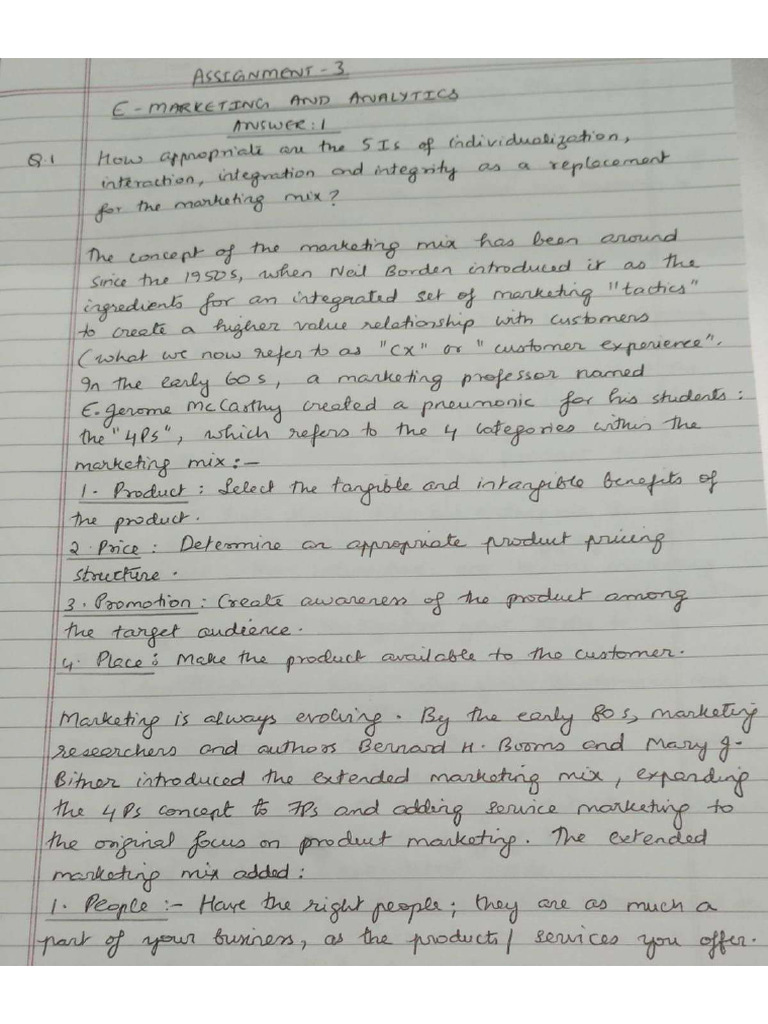 ASSIGNMENT - 3
E - MARKETING AND ANALYTICS
ANSWER : 1
Q.1 How appropriate are the 5 Is of individualization,
interaction, integration and integrity as a replacement
for the marketing mix?
The concept of the marketing mix has been around
since the 1950s, when Neil Borden introduced it as the
ingredients for an integrated set of marketing "tactics"
to create a higher value relationship with customers
(what we now refer to as "CX" or "customer experience".
In the early 60s, a marketing professor named
E. Jerome McCarthy created a pneumonic for his students :
the "4Ps", which refers to the 4 categories within the
marketing mix :-
1. Product : Select the tangible and intangible benefits of
the product.
2. Price : Determine an appropriate product pricing
structure.
3. Promotion : Create awareness of the product among
the target audience.
4. Place : Make the product available to the customer.
Marketing is always evolving. By the early 80s, marketing
researchers and authors Bernard H. Booms and Mary J.
Bitner introduced the extended marketing mix, expanding
the 4Ps concept to 7Ps and adding service marketing to
the original focus on product marketing. The extended
marketing mix added :
1. People :- Have the right people; they are as much a
part of your business, as the products / services you offer.